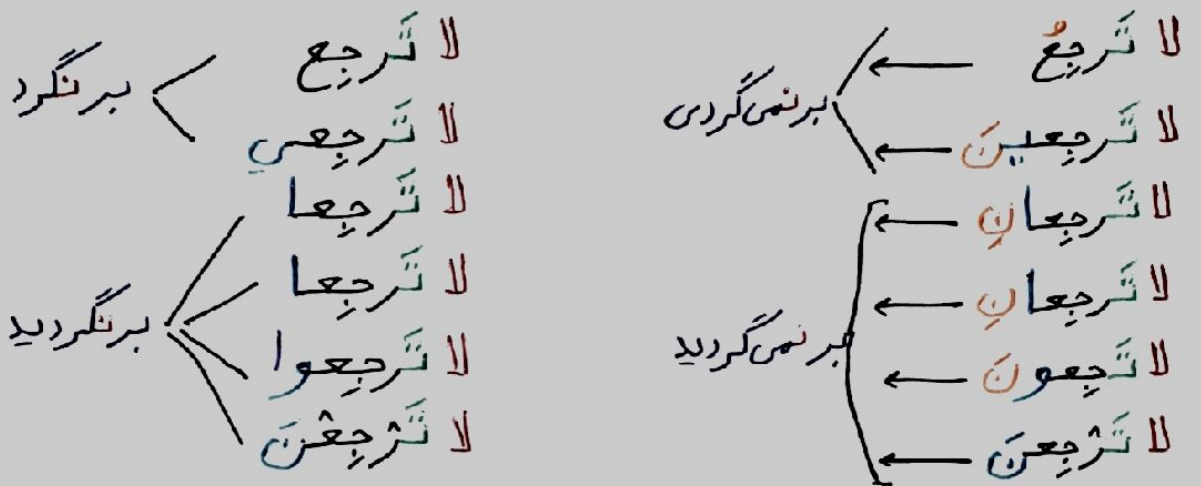 لا تَرجِعُ
لا تَرجِعینَ
بر نمی‌گردی
لا تَرجِعانِ
لا تَرجِعانِ
لا تَرجِعونَ
لا تَرْجِعنَ
بر نمی‌گردید
لا تَرجِع
لا تَرجِعي
بر نگرد
لا تَرجِعا
لا تَرجِعا
لا تَرجِعوا
لا تَرْجِعْنَ
بر نگردید